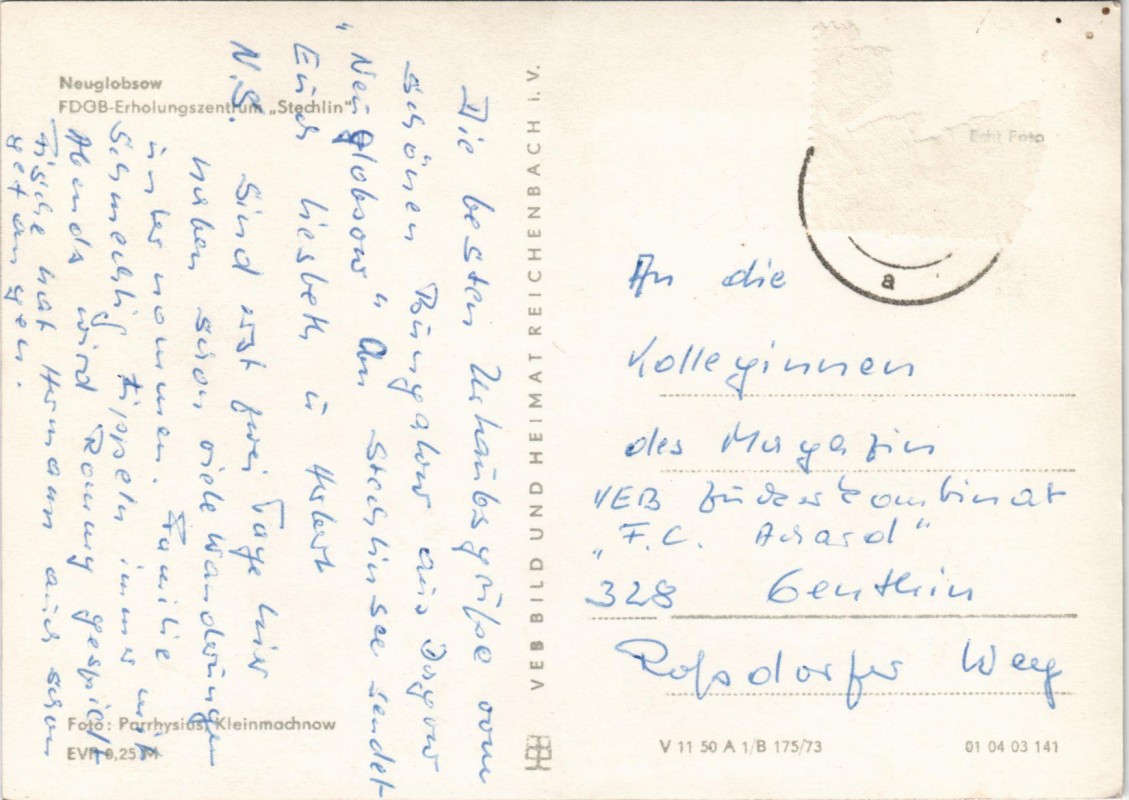 Neuglobsow
FDGB-Erholungszentrum „Stechlin"
Die besten Urlaubsgrüße vom
schönen Bungalow aus Dagow
"Neuglobsow" am Stechlinsee sendet
Euch Liesbeth u Herbert
N.S. Sind erst zwei Tage hier
haben schon viele Wanderungen
unternommen. Familie
Schmechtig tippeln immer mit
Abends wird Rommy gespielt
Fische hat Hermann auch schon
gefangen.
Foto: Parrhysius, Kleinmachnow
EVP 0,25 M
VEB BILD UND HEIMAT REICHENBACH I. V.
Echt Foto
a
An die
Kolleginnen
des Magazin
VEB Zuckerkombinat
„F.C. Achard"
328 Genthin
Roßdorfer Weg
V 11 50 A 1/B 175/73
01 04 03 141